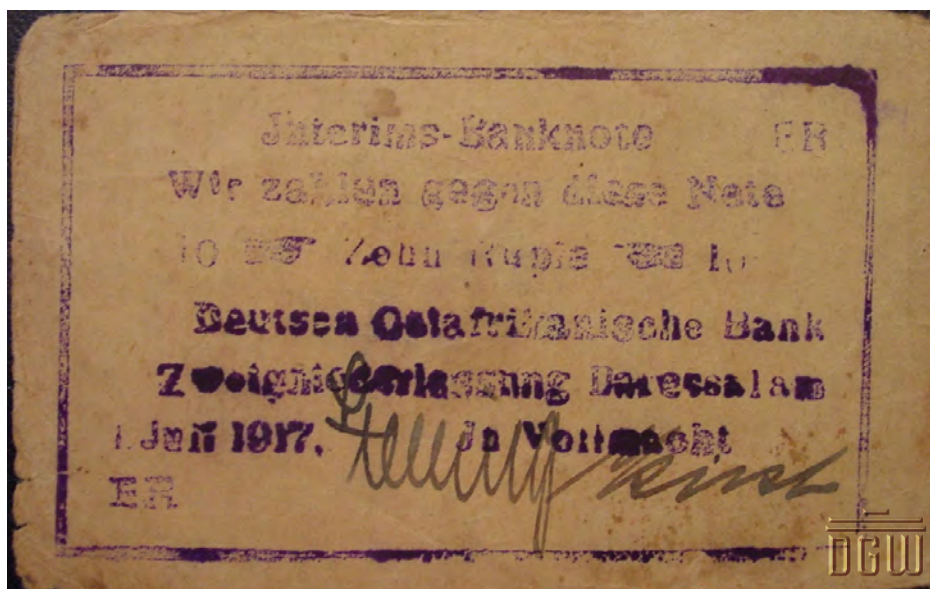 Jnterims-Banknote ER
Wir zahlen gegen diese Note
10 Zehn Rupie 10
Deutsch Ostafrikanische Bank
Zweigniederlassung Daressalam
1. Juli 1917. Jn Vollmacht
ER
DGW